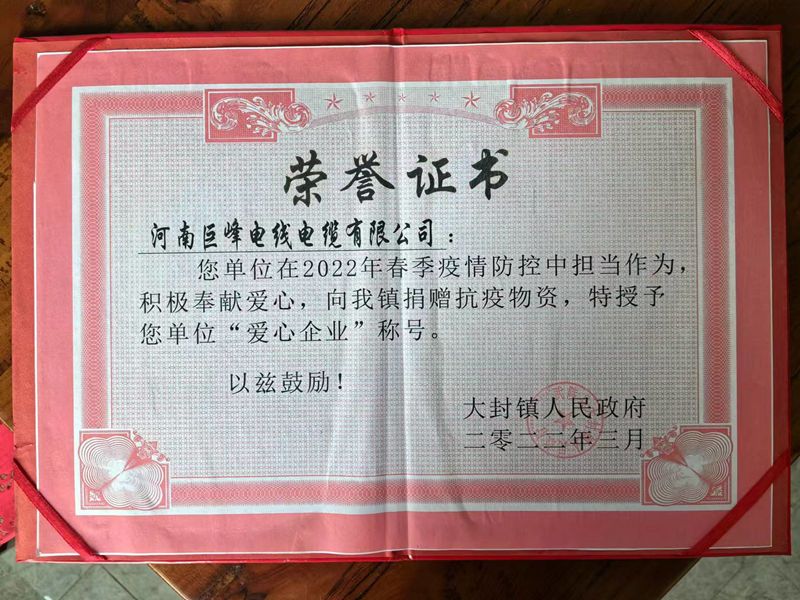 荣誉证书
河南巨峰电线电缆有限公司：
您单位在2022年春季疫情防控中担当作为，
积极奉献爱心，向我镇捐赠抗疫物资，特授予
您单位“爱心企业”称号。
以兹鼓励！
大封镇人民政府
二零二二年三月